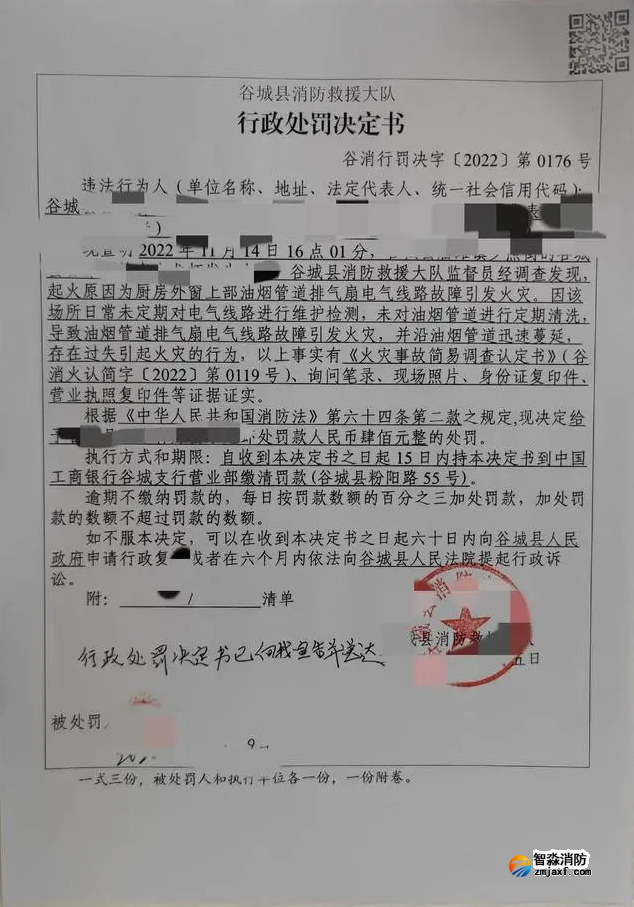 谷城县消防救援大队
行政处罚决定书
谷消行罚决字〔2022〕第 0176 号
违法行为人（单位名称、地址、法定代表人、统一社会信用代码）：
谷城
表
）
现查明 2022 年 11 月 14 日 16 点 01 分，
谷城县消防救援大队监督员经调查发现，
起火原因为厨房外窗上部油烟管道排气扇电气线路故障引发火灾。因该
场所日常未定期对电气线路进行维护检测，未对油烟管道进行定期清洗，
导致油烟管道排气扇电气线路故障引发火灾，并沿油烟管道迅速蔓延，
存在过失引起火灾的行为，以上事实有《火灾事故简易调查认定书》（谷
消火认简字〔2022〕第 0119 号）、询问笔录、现场照片、身份证复印件、
营业执照复印件等证据证实。
根据《中华人民共和国消防法》第六十四条第二款之规定,现决定给
处罚款人民币肆佰元整的处罚。
执行方式和期限：自收到本决定书之日起 15 日内持本决定书到中国
工商银行谷城支行营业部缴清罚款（谷城县粉阳路 55 号）。
逾期不缴纳罚款的，每日按罚款数额的百分之三加处罚款，加处罚
款的数额不超过罚款的数额。
如不服本决定，可以在收到本决定书之日起六十日内向谷城县人民
政府申请行政复 或者在六个月内依法向谷城县人民法院提起行政诉
讼。
附： / 清单
县消防救
五日
行政处罚决定书已向我宣告并送达
被处罚
一式三份，被处罚人和执行单位各一份，一份附卷。
智淼消防
zmjaxf.com